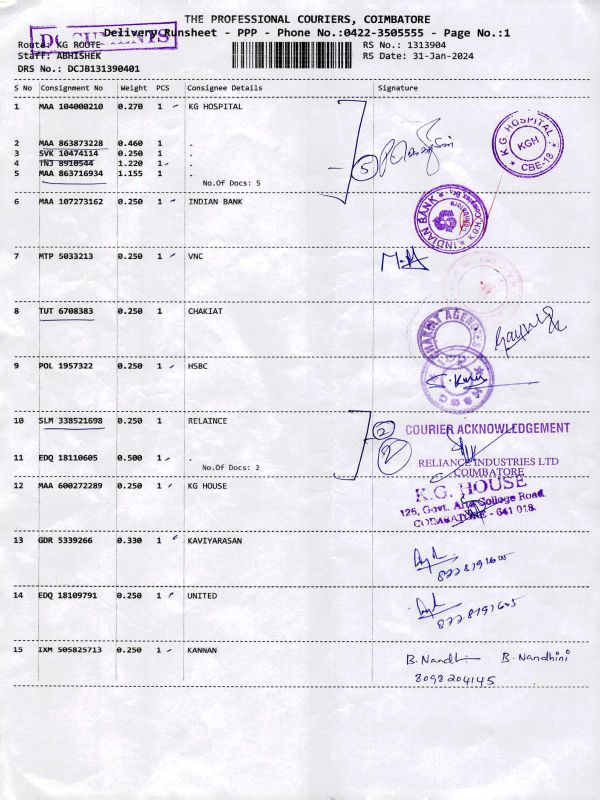 THE PROFESSIONAL COURIERS, COIMBATORE
DOCUMENTS
Delivery Runsheet - PPP - Phone No.:0422-3505555 - Page No.:1
Route: KG ROUTE RS No.: 1313904
Staff: ABHISHEK RS Date: 31-Jan-2024
DRS No.: DCJB131390401
S No Consignment No Weight PCS Consignee Details Signature
1 MAA 104000210 0.270 1 KG HOSPITAL
2 MAA 863873228 0.460 1 .
3 SVK 10474114 0.250 1 .
4 TNJ 8910544 1.220 1 .
5 MAA 863716934 1.155 1 .
No.Of Docs: 5
5
K.G. HOSPITAL
KGH
CBE-18
6 MAA 107273162 0.250 1 INDIAN BANK
INDIAN BANK
7 MTP 5033213 0.250 1 VNC
8 TUT 6708383 0.250 1 CHAKIAT
9 POL 1957322 0.250 1 HSBC
10 SLM 338521698 0.250 1 RELAINCE
11 EDQ 18110605 0.500 1 .
No.Of Docs: 2
2
2
COURIER ACKNOWLEDGEMENT
RELIANCE INDUSTRIES LTD
COIMBATORE
12 MAA 600272289 0.250 1 KG HOUSE
K.G. HOUSE
126, Govt. Arts College Road
COIMBATORE - 641 018.
13 GDR 5339266 0.330 1 KAVIYARASAN
8778191605
14 EDQ 18109791 0.250 1 UNITED
8778191605
15 IXM 505825713 0.250 1 KANNAN
B. Nandhini B. Nandhini
8098204145